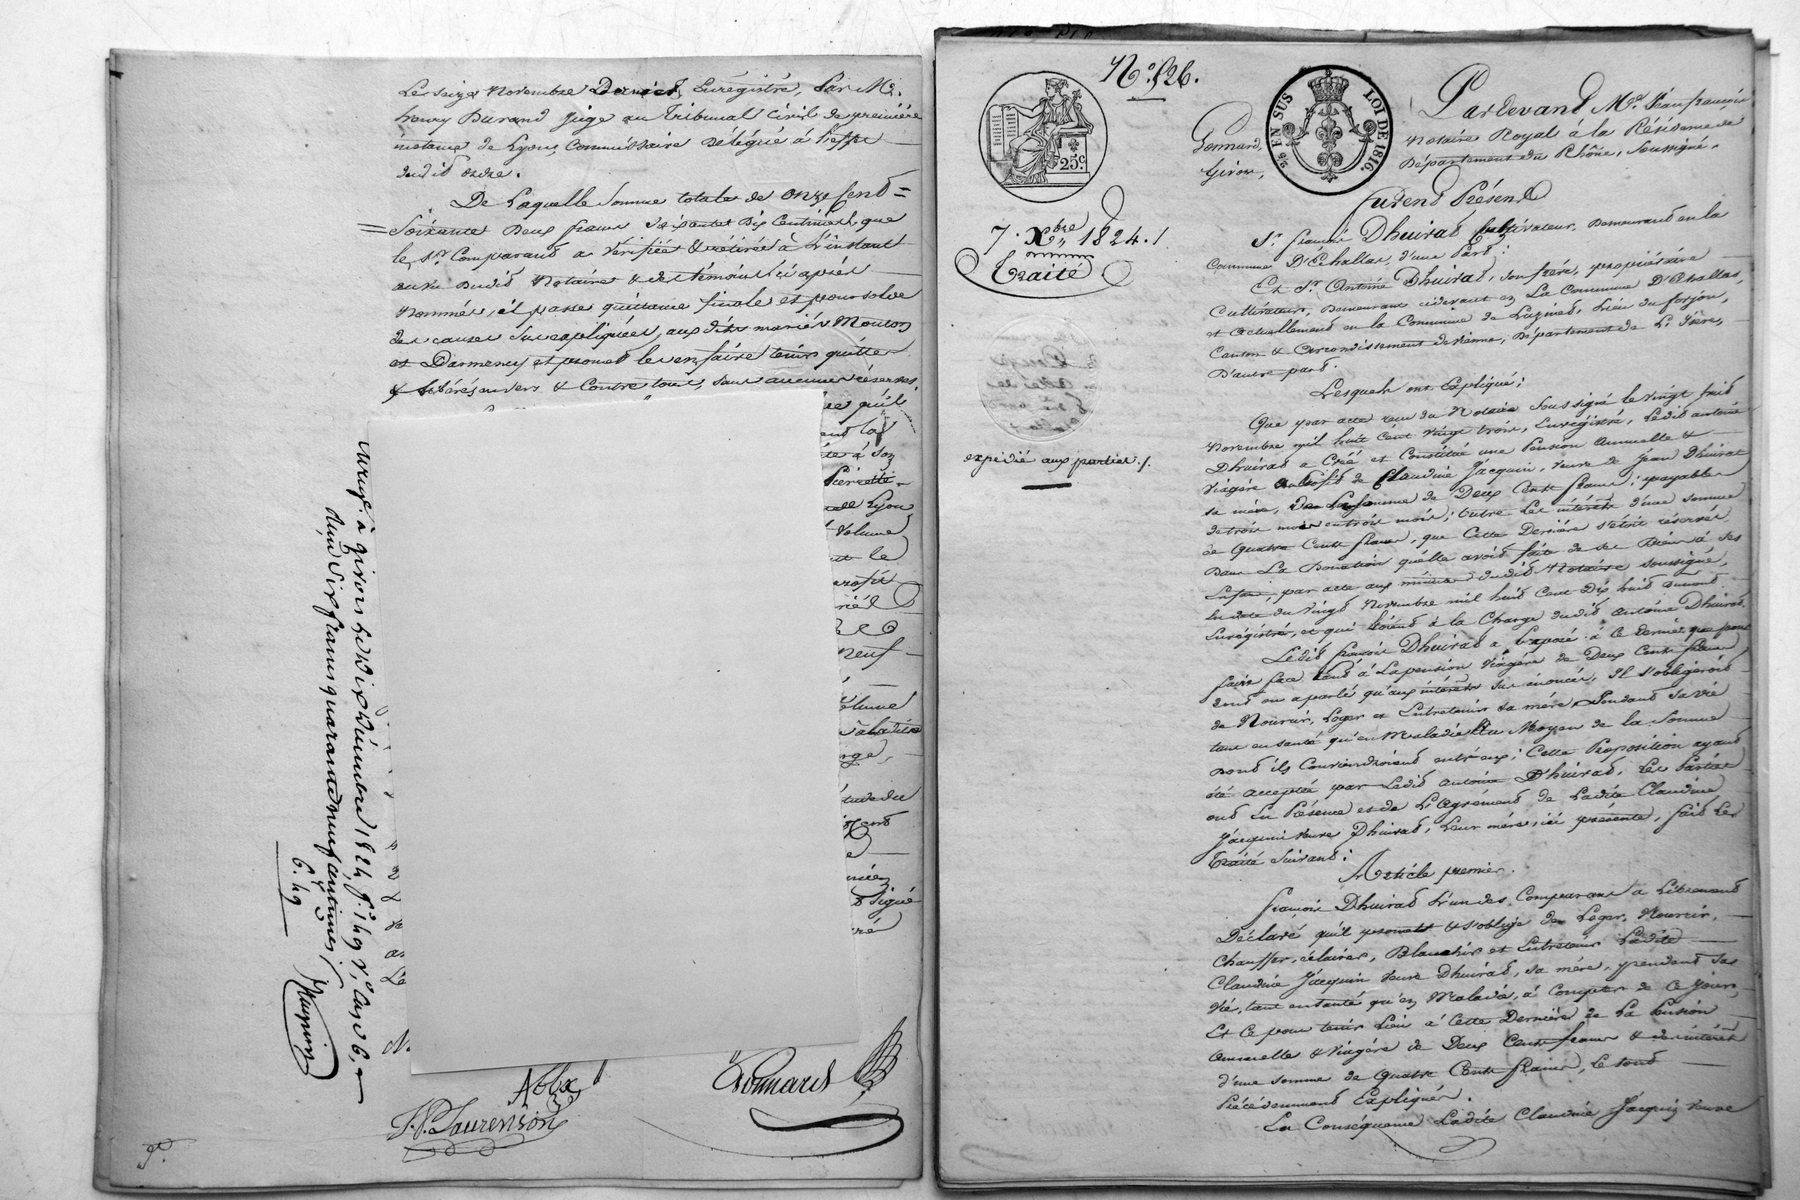 Le Seize Novembre Dernier, Enregistré, Par Mr.
henry Durand Juge au Tribunal Civil de première
instance de Lyon, Commissaire Délégué à l'effet
dudit ordre.
De Laquelle Somme totale de onze Cent
Soixante Deux francs Soixante Dix Centimes, que
le Sr. Comparant a Vérifiée & retirée à L'instant
au vu dudit Notaire & des témoins ci après
Nommés, il passe quittance finale et pour solde
des causes Sus expliquées, aux dits mariés Mouton
et Darmency et promet les en faire tenir quittes
& Libérés envers & Contre tous, sans aucunes réserves.
qu'il
la
à son
de Lyon
Volume
le
profit
Neuf
Volume
à la dite
signé
Enreg. à givors Le Dix Décembre 1824, f.° 149 v.° Case 6.
reçu Six francs quarante neuf centimes
6.49
J.P. Laurenson
Gonnard
N.° 526.
25 c.
EN SUS
LOI DE 1816.
Gonnard,
Givors,
7. Xbre 1824.
Traité
expédié aux parties.
Pardevant Me. Jean françois
Notaire Royal à la Résidence de
Département du Rhône, Soussigné.
furent Présents
Sr. françois Dhuirat Cultivateur, Demeurant en la
Commune D'Echallas, d'une Part;
Et Sr. Antoine Dhuirat, son frère, propriétaire
Cultivateur, Demeurant cidevant en La Commune D'Echallas,
et actuellement en la Commune de Luzinet, Lieu du forjon,
Canton & Arrondissement de Vienne, Département de L'Isère,
D'autre part.
Lesquels ont Expliqué;
Que par acte reçu du Notaire Soussigné le Vingt huit
Novembre mil huit Cent Vingt trois, Enregistré, Ledit antoine
Dhuirat a Créé et Constitué une Pension Annuelle &
Viagère au Profit de Claudine Jacquin, Veuve de Jean Dhuirat
sa mère, De La Somme de Deux Cents francs; payable
de trois mois en trois mois; Outre Les intérêts d'une somme
de Quatre Cents francs, que Cette Dernière s'était réservée
Dans La Donation qu'elle avoit faite de ses Biens à ses
Enfans, par acte aux minutes dudit Notaire soussigné,
En date du Vingt Novembre mil huit Cent Dix huit Dûment
Enregistré, et qui étoient à la Charge dudit Antoine Dhuirat.
Ledit françois Dhuirat a Exposé à Ce dernier que pour
faire face tant à La pension Viagère de Deux Cents francs
dont on a parlé qu'aux intérêts Sus énoncés, Il s'obligeroit
de Nourrir, Loger et Entretenir sa mère, Pendant Sa vie
tant en santé qu'en Maladie Au Moyen de la Somme
Dont ils Conviendroient entr'eux; Cette Proposition ayant
été acceptée par Ledit antoine D'huirat, Les Parties
ont En Présence et de L'Agrément de Ladite Claudine
Jacquin veuve Dhuirat, Leur mère, ici présente, fait Le
Traité Suivant;
Article premier.
françois Dhuirat L'un des Comparans a Librement
Déclaré qu'il promet & s'oblige de Loger, Nourrir,
Chauffer, éclairer, Blanchir et Entretenir Ladite
Claudine Jacquin veuve Dhuirat, sa mère, pendant sa
Vie, tant en santé qu'en Maladie, à Compter de Ce jour,
Et Ce pour tenir Lieu à Cette Dernière de La Pension
Annuelle & Viagère de Deux Cents francs & des intérêts
d'une somme de Quatre Cents francs, Le tout
Précédemment Expliqués.
En Conséquence Ladite Claudine Jacquin veuve